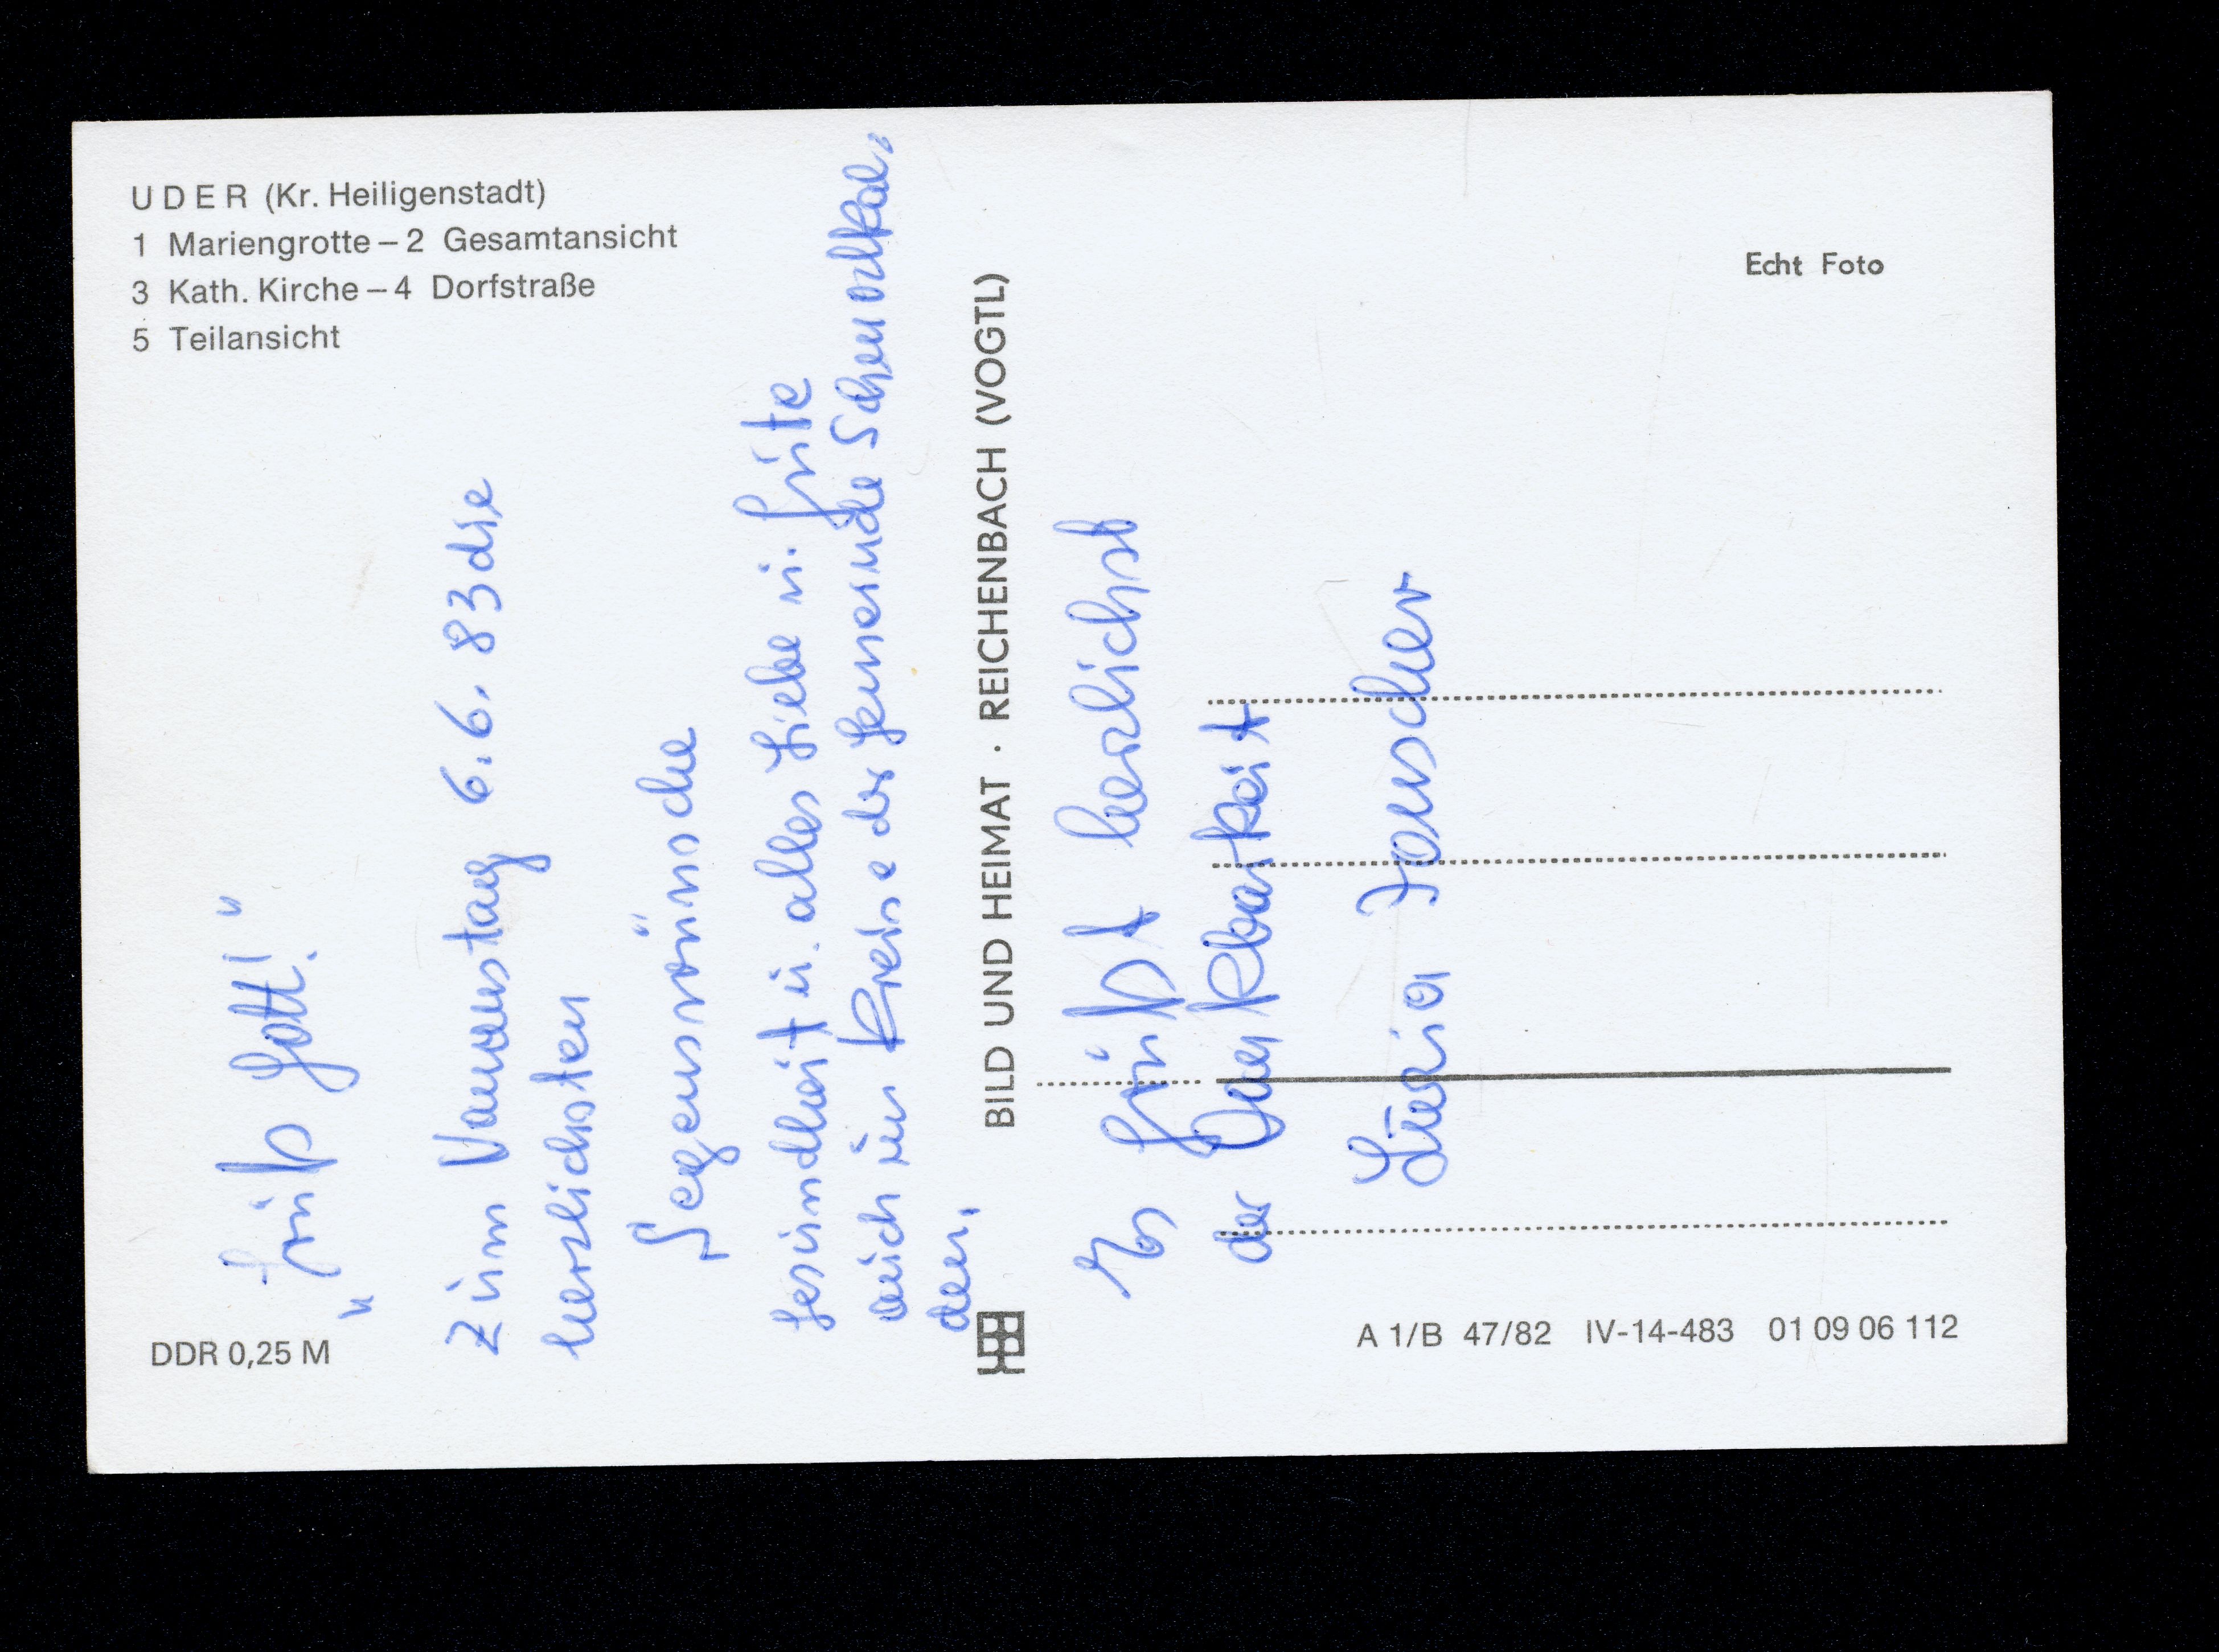 UDER (Kr. Heiligenstadt)
1 Mariengrotte – 2 Gesamtansicht
3 Kath. Kirche – 4 Dorfstraße
5 Teilansicht
„Grüß Gott!"
Zum Namenstag 6. 6. 83 die
herzlichsten
Segenswünsche
Gesundheit u. alles Liebe u. Gute
auch im Kreise der Gemeinde
den.
BILD UND HEIMAT · REICHENBACH (VOGTL)
Es grüßt herzlichst
der Dankbarkeit
Luzia
Echt Foto
DDR 0,25 M
A 1/B 47/82 IV-14-483 01 09 06 112